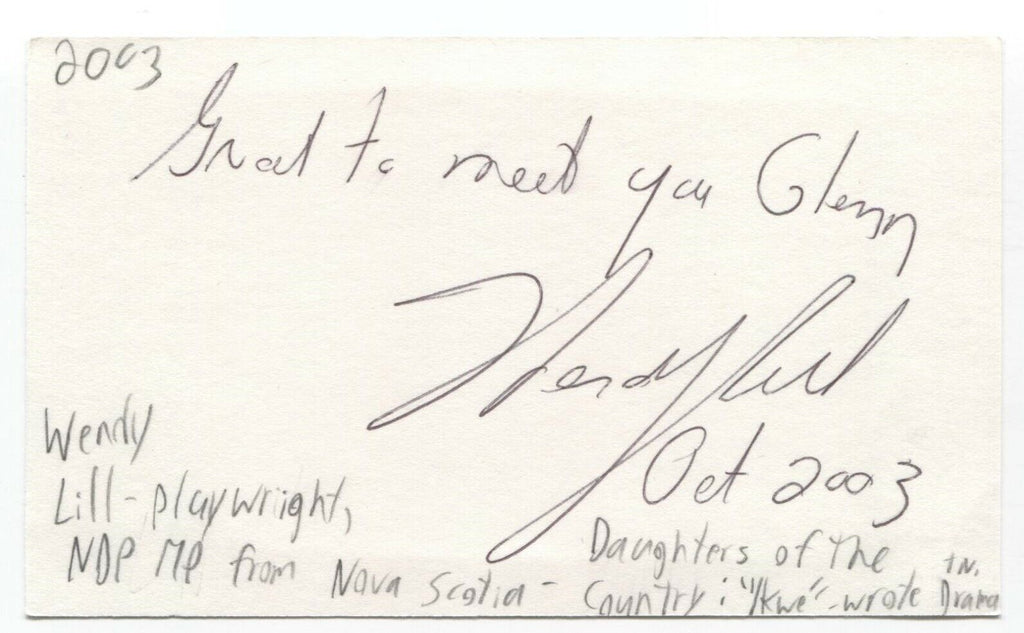 2003
Great to meet you Glenn
Wendy Lill
Oct 2003
Wendy
Lill - playwright,
NDP MP from Nova Scotia -
Daughters of The
Country: "Ikwe" - wrote T.V. Drama